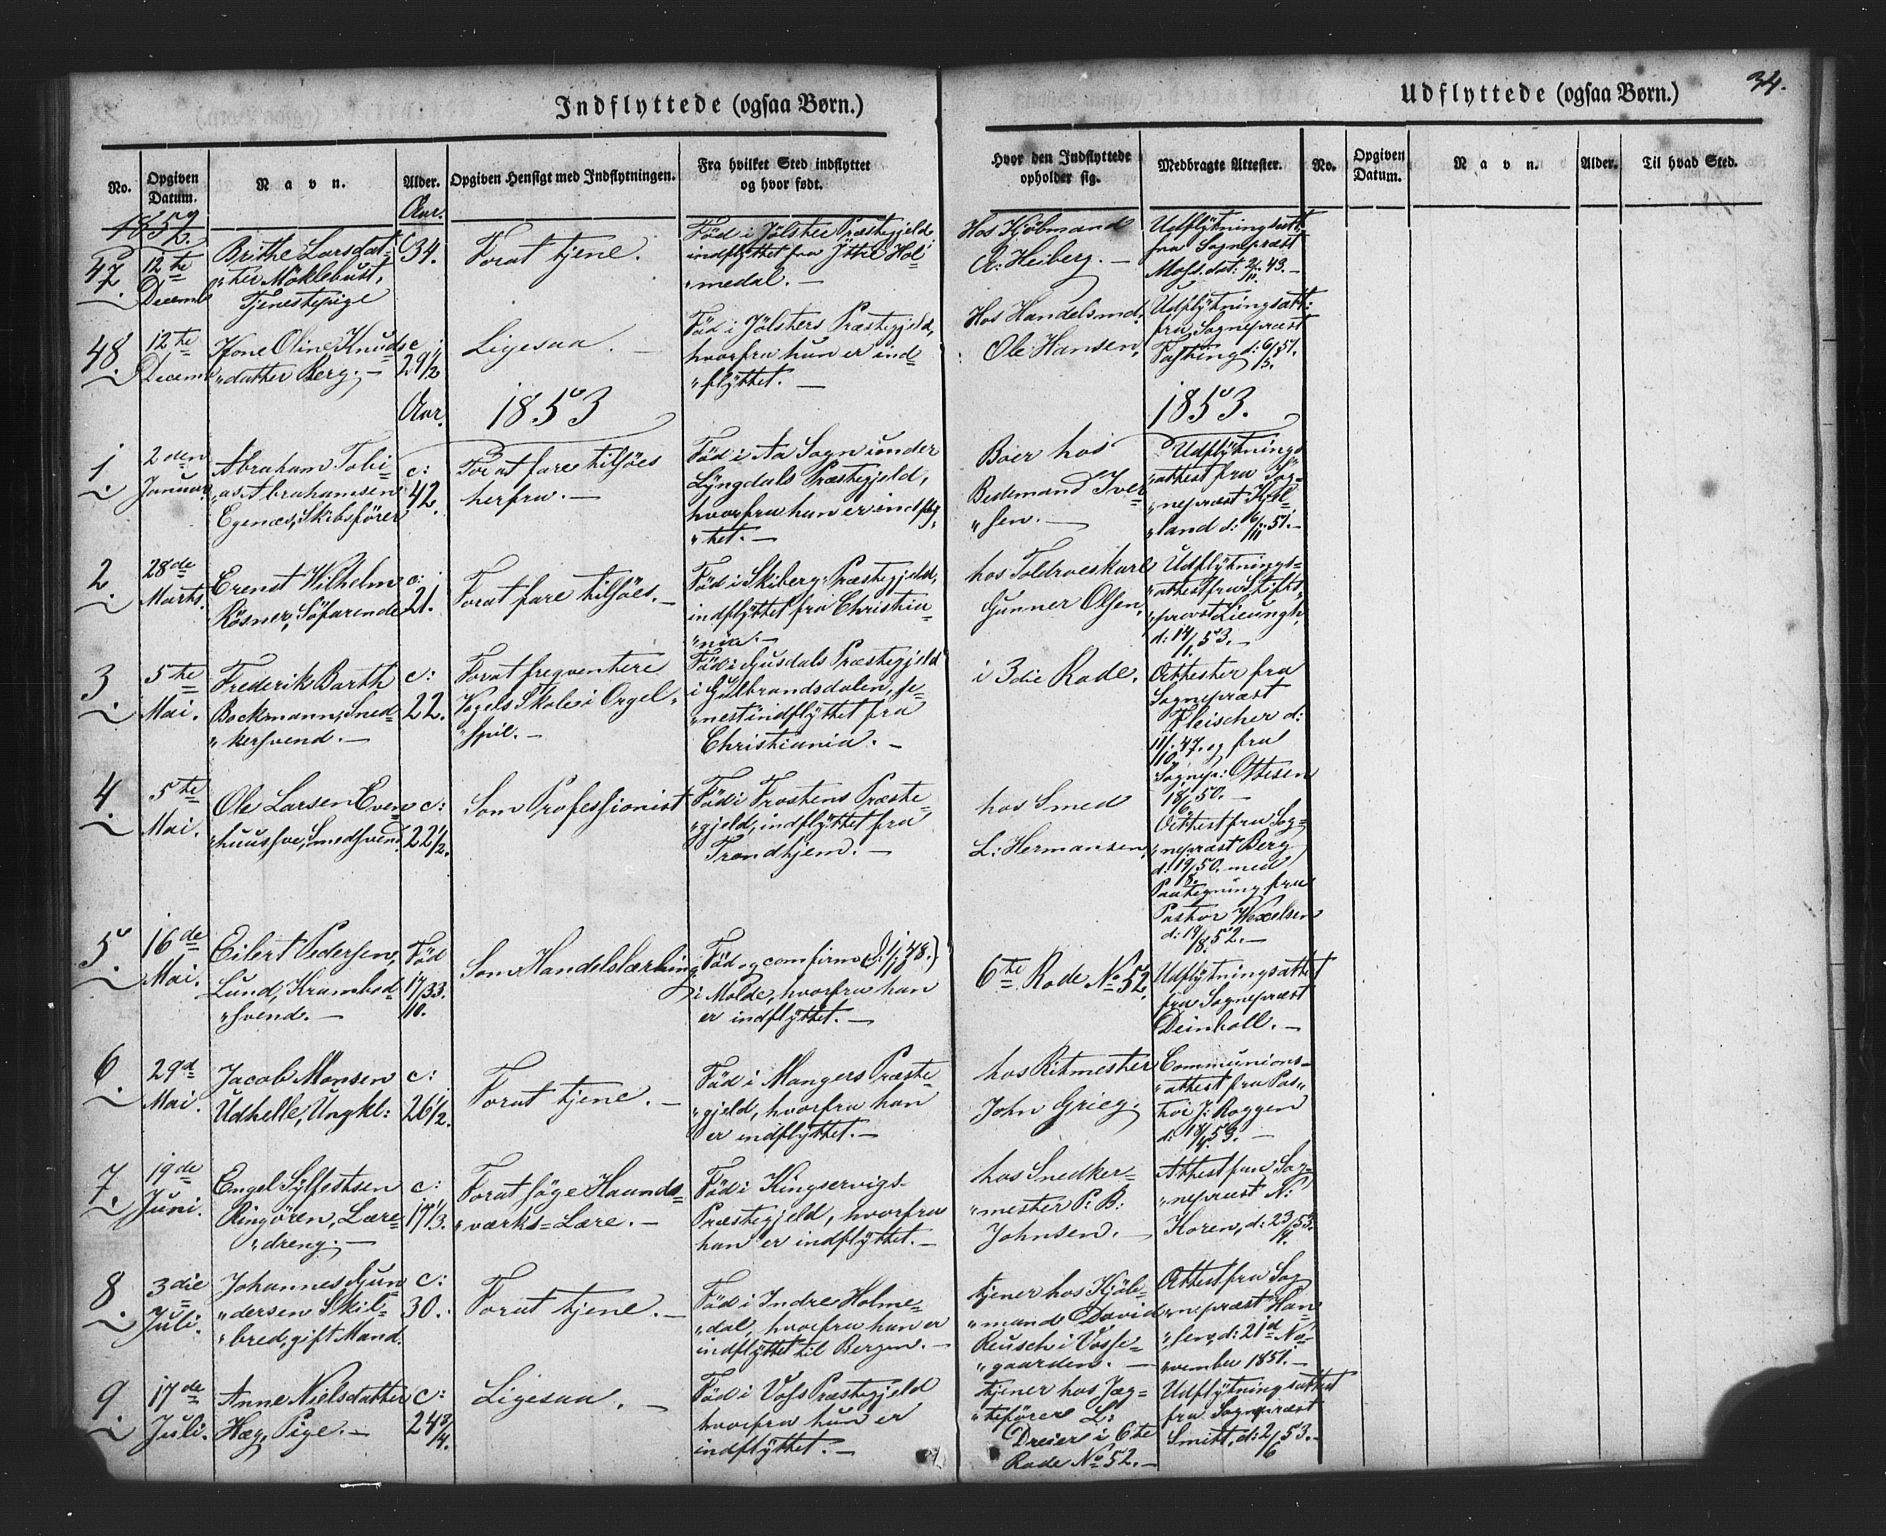 Indflyttede (ogsaa Børn.)
Udflyttede (ogsaa Børn.)
34.
No.
Opgiven Datum.
Navn.
Alder.
Opgiven Hensigt med Indflytningen.
Fra hvilket Sted indflyttet og hvor født.
Hvor den Indflyttede opholder sig.
Medbragte Attester.
No.
Opgiven Datum.
Navn.
Alder.
Til hvad Sted.
1852.
Aar.
47.
12te Decemb
Brithe Larsdat-
"ter Möklebust,
Tjenestepige
c 34.
Forat tjene.
Fød i Jølster Præstegjeld
indflyttet fra Yttre Hol-
"medal. —
Hos Kjöbmand
A: Heiberg. —
Udflytningsatt:
fra Sognepræst
48.
12te Decemb
Oline Knuds
"datter Berg. —
c 29½
Ligesaa. —
Fød i Jølsters Præstegjeld,
hvorfra hun er ind=
"flyttet. —
Hos Handelsmd.
Ole Hansen,
Udflytningsatt:
fra Sognepræst
Aar.
1853
1853.
1.
2den Januar
Abraham Tobi-
"as Abrahamsen
Egenæs, Skibsfører
c: 42.
Forat fare tilsöes
herfra. —
Fød i Aa Sogn under
Lyngdals Præstegjeld,
hvorfra han er indfly,
"tet. —
Boer hos
Bedemand Iver
"sen. —
Udflytnings
"attest fra Sog-
"nepræst
"land d: 16/11 51. —
2.
28de Marts.
Erenst Wilhelm
Rösner, Söfarende
c: 21.
Forat fare tilsöes. —
Fød i Skiberg Præstegjeld,
indflyttet fra Christia
"nia. —
hos Toldroeskarl
Gunner Olsen,
Udflytnings-
"attest fra Stift,
"provst
d: 14/1 53. —
3.
5te Mai.
Frederik Barth
Bockmann, Sned-
"kersvend. —
c: 22.
Forat freqventere
Vogels Skole i Orgel,
"spil. —
Fød i Gusdals Præstegjeld
i Gulbrandsdalen, se-
"nest indflyttet fra
Christiania. —
i 3die Rode.
Attester fra
Sognepræst
Fleischer d:
11/10 47. og fra
Sognepr: Ottesen
18/6 50. —
4.
5te Mai.
Ole Larsen Even
"huussve, Smedsvend.
c: 22½.
Som Professionist
Fød i Frostens Præste-
"gjeld, indflyttet fra
Trondhjem. —
hos Smed
L: Hermansen,
Attest fra Sog-
"nepræst Berg
d: 19/8 50. med
Paategning fra
Pastor Wexelsen
d: 19/8 52. —
5.
16de Mai.
Eilert Pedersen
Lund, Krambod
"svend. —
Fød 17/10 33.
Som Handelslærling
Fød og comfirm
i Molde, hvorfra han
er indflyttet. —
6te Rode No 52.
Udflytningsattest
fra Sognepræst
Deinboll. —
6.
29d Mai.
Jacob Monsen
Udhelle, Ungkl:
c: 26½.
Forat tjene. —
Fød i Mangers Præste-
"gjeld, hvorfra han
er indflyttet. —
hos Ritmester
John Grieg,
Communions-
"attest fra Pas"
tor J: Roggen
d: 18/4 53. —
7.
19de Juni.
Engel Sylfestsen
Ringören, Lære-
"dreng. —
c: 17⅓.
Forat söge Haands-
"værks=Lære. —
Fød i Kingservigs
Præstegjeld, hvorfra
han er indflyttet. —
hos Snedker-
"mester P: B:
Johnsen. —
Attest fra Sog-
"nepræst N:
Koren, d: 23/4 53.
8.
3die Juli.
Johannes Gun
"dersen Skil-
"bred, gift Mand.
c: 30.
Forat tjene. —
Fød i Indre Holme-
"dal, hvorfra han er
indflyttet til Bergen. —
tjener hos Kjöb-
"mand David
Reusch i Vosse-
"gaarden. —
Attest fra Sog
"nepræst Han-
"sen, d: 21d No-
"vember 1851. —
9.
17de Juli.
Anne Nielsdatter
Hæg, Pige. —
c: 24¾.
Ligesaa. —
Fød i Voss Præstegjeld
hvorfra hun er
indflyttet. —
tjener hos Jæg-
"tefører L:
Dreier i 6te
Rode No 52. —
Udflytningsattest
fra Sognepræst
Smitt, d: 2/6 53. —